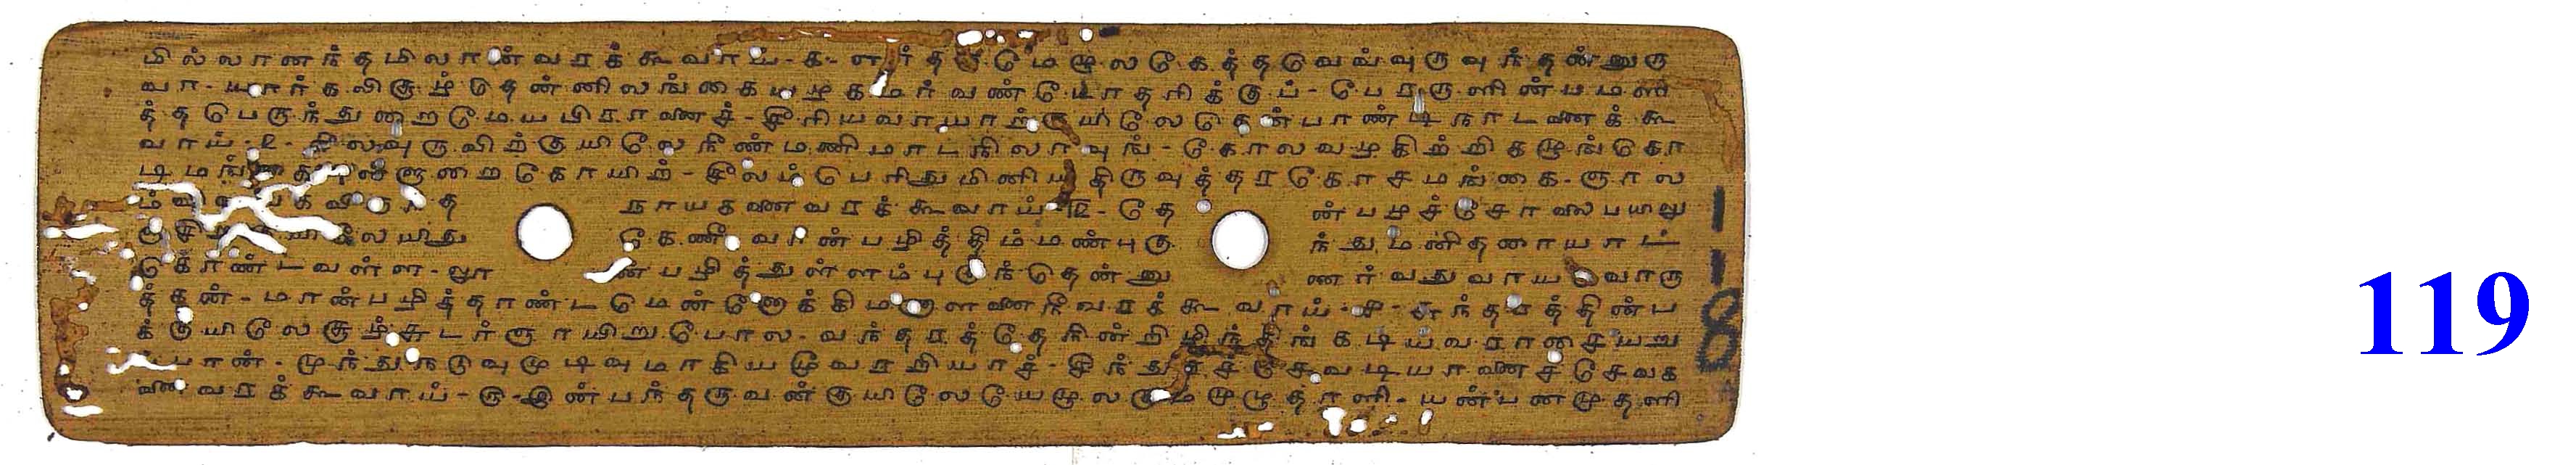 மில்லானந்தமிலான்வரக்கூவாய்-க-ஏர்தருமேழுலகேத்தவெவ்வுருவுந்தன்னுரு
வா-யார்கலிசூழ்தென்னிலங்கையழகமர்வண்டோதரிக்குப்-பேரருளின்பமளி
த்தபெருந்துறைமேயபிரானைச்-சீரியவாயாற்குயிலேதென்பாண்டிநாடனைக்கூ
வாய்-௨-நீலவுருவிற்குயிலேநீண்மணிமாடநிலாவுங்-கோலவழகிற்றிகழுங்கொ
டிமங்கையுள்ளுறைகோயிற்-சீலம்பெரிதுமினியதிருவுத்தரகோசமங்கை-ஞால
ம்விளங்கவிருந்த நாயகனைவரக்கூவாய்-௩-தே ன்பழச்சோலைபயிலு
ஞ்சிறுகுயிலேயிது கேணீவான்பழித்திம்மண்புகு ந்துமனிதரையாட்
கொண்டவள்ள-லூ ன்பழித்துள்ளம்புகுந்தென்னு ணர்வதுவாயவொரு
த்தன்-மான்பழித்தாண்டமென்னோக்கிமணாளனைநீவரக்கூவாய்-௪-சுந்தரத்தின்ப
க்குயிலேசூழ்சுடர்ஞாயிறுபோல-வந்தரத்தேநின்றிழிந்திங்கடியவராசையறு
ப்பான்-முந்துநடுவுமுடிவுமாகியமூவரறியாச்-சிந்துரச்சேவடியானைச்சேவக
னைவரக்கூவாய்-௫-இன்பந்தருவன்குயிலேயேழுலகுமுழுதாளி-யன்பனமுதளி
118
119